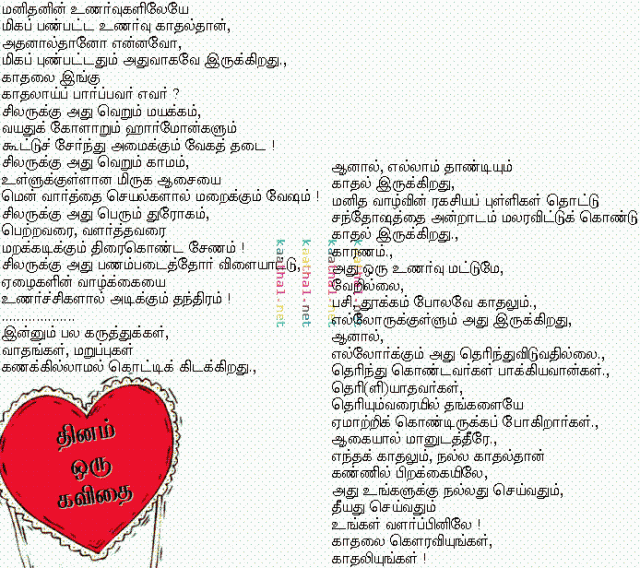 மனிதனின் உணர்வுகளிலேயே
மிகப் பண்பட்ட உணர்வு காதல்தான்,
அதனால்தானோ என்னவோ,
மிகப் புண்பட்டதும் அதுவாகவே இருக்கிறது.,
காதலை இங்கு
காதலாய்ப் பார்ப்பவர் எவர் ?
சிலருக்கு அது வெறும் மயக்கம்,
வயதுக் கோளாறும் ஹார்மோன்களும்
கூட்டுச் சேர்ந்து அமைக்கும் வேகத் தடை !
சிலருக்கு அது வெறும் காமம்,
உள்ளுக்குள்ளான மிருக ஆசையை
மென் வார்த்தை செயல்களால் மறைக்கும் வேஷம் !
சிலருக்கு அது பெரும் துரோகம்,
பெற்றவரை, வளர்த்தவரை
மறக்கடிக்கும் திரைகொண்ட சேணம் !
சிலருக்கு அது பணம்படைத்தோர் விளையாட்டு,
ஏழைகளின் வாழ்க்கையை
உணர்ச்சிகளால் அடிக்கும் தந்திரம் !
...................
இன்னும் பல கருத்துக்கள்,
வாதங்கள், மறுப்புகள்
கணக்கில்லாமல் கொட்டிக் கிடக்கிறது.,
தினம்
ஒரு
கவிதை
ஆனால், எல்லாம் தாண்டியும்
காதல் இருக்கிறது,
மனித வாழ்வின் ரகசியப் புள்ளிகள் தொட்டு
சந்தோஷத்தை அன்றாடம் மலரவிட்டுக் கொண்டு
காதல் இருக்கிறது.,
காரணம்.,
அது ஒரு உணர்வு மட்டுமே,
வேறில்லை,
பசி, தூக்கம் போலவே காதலும்.,
எல்லோருக்குள்ளும் அது இருக்கிறது,
ஆனால்,
எல்லோர்க்கும் அது தெரிந்துவிடுவதில்லை.,
தெரிந்து கொண்டவர்கள் பாக்கியவான்கள்.,
தெரி(ளி)யாதவர்கள்,
தெரியும்வரையில் தங்களையே
ஏமாற்றிக் கொண்டிருக்கப் போகிறார்கள்.,
ஆகையால் மானுடத்தீரே.,
எந்தக் காதலும், நல்ல காதல்தான்
கண்ணில் பிறக்கையிலே,
அது உங்களுக்கு நல்லது செய்வதும்,
தீயது செய்வதும்
உங்கள் வளர்ப்பினிலே !
காதலை கௌரவியுங்கள்,
காதலியுங்கள் !
kaathal.net
kaathal.net
kaathal.net
kaathal.net